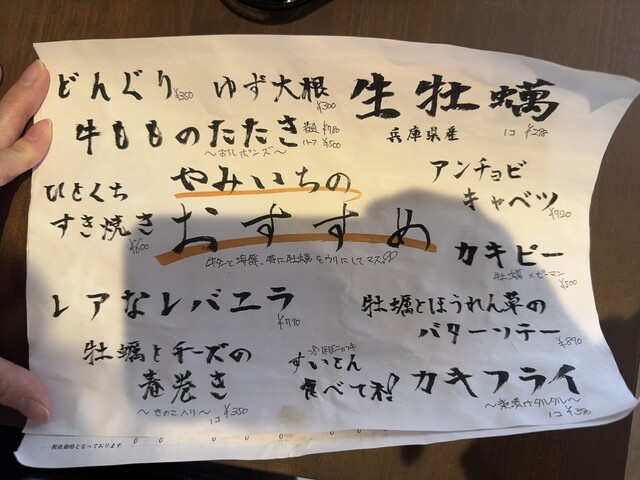 どんぐり ¥350
ゆず大根 ¥300
生牡蠣
兵庫県産 1コ ¥258
牛もものたたき ¥780
ハーフ ¥500
〜おろしポンズ〜
ひとくち
すき焼き ¥600
やみいちの
おすすめ
アンチョビ
キャベツ ¥720
カキピー
牡蠣×ピーマン ¥500
レアなレバニラ ¥770
牡蠣とほうれん草の
バターソテー ¥890
牡蠣とチーズの
春巻き
〜きのこ入り〜 1コ ¥350
すいとん
食べて和!
カキフライ
1コ ¥350
税抜価格となっております